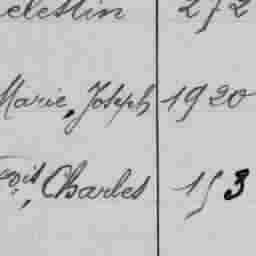 elestin 272
Marie, Joseph 1920
çois, Charles 153